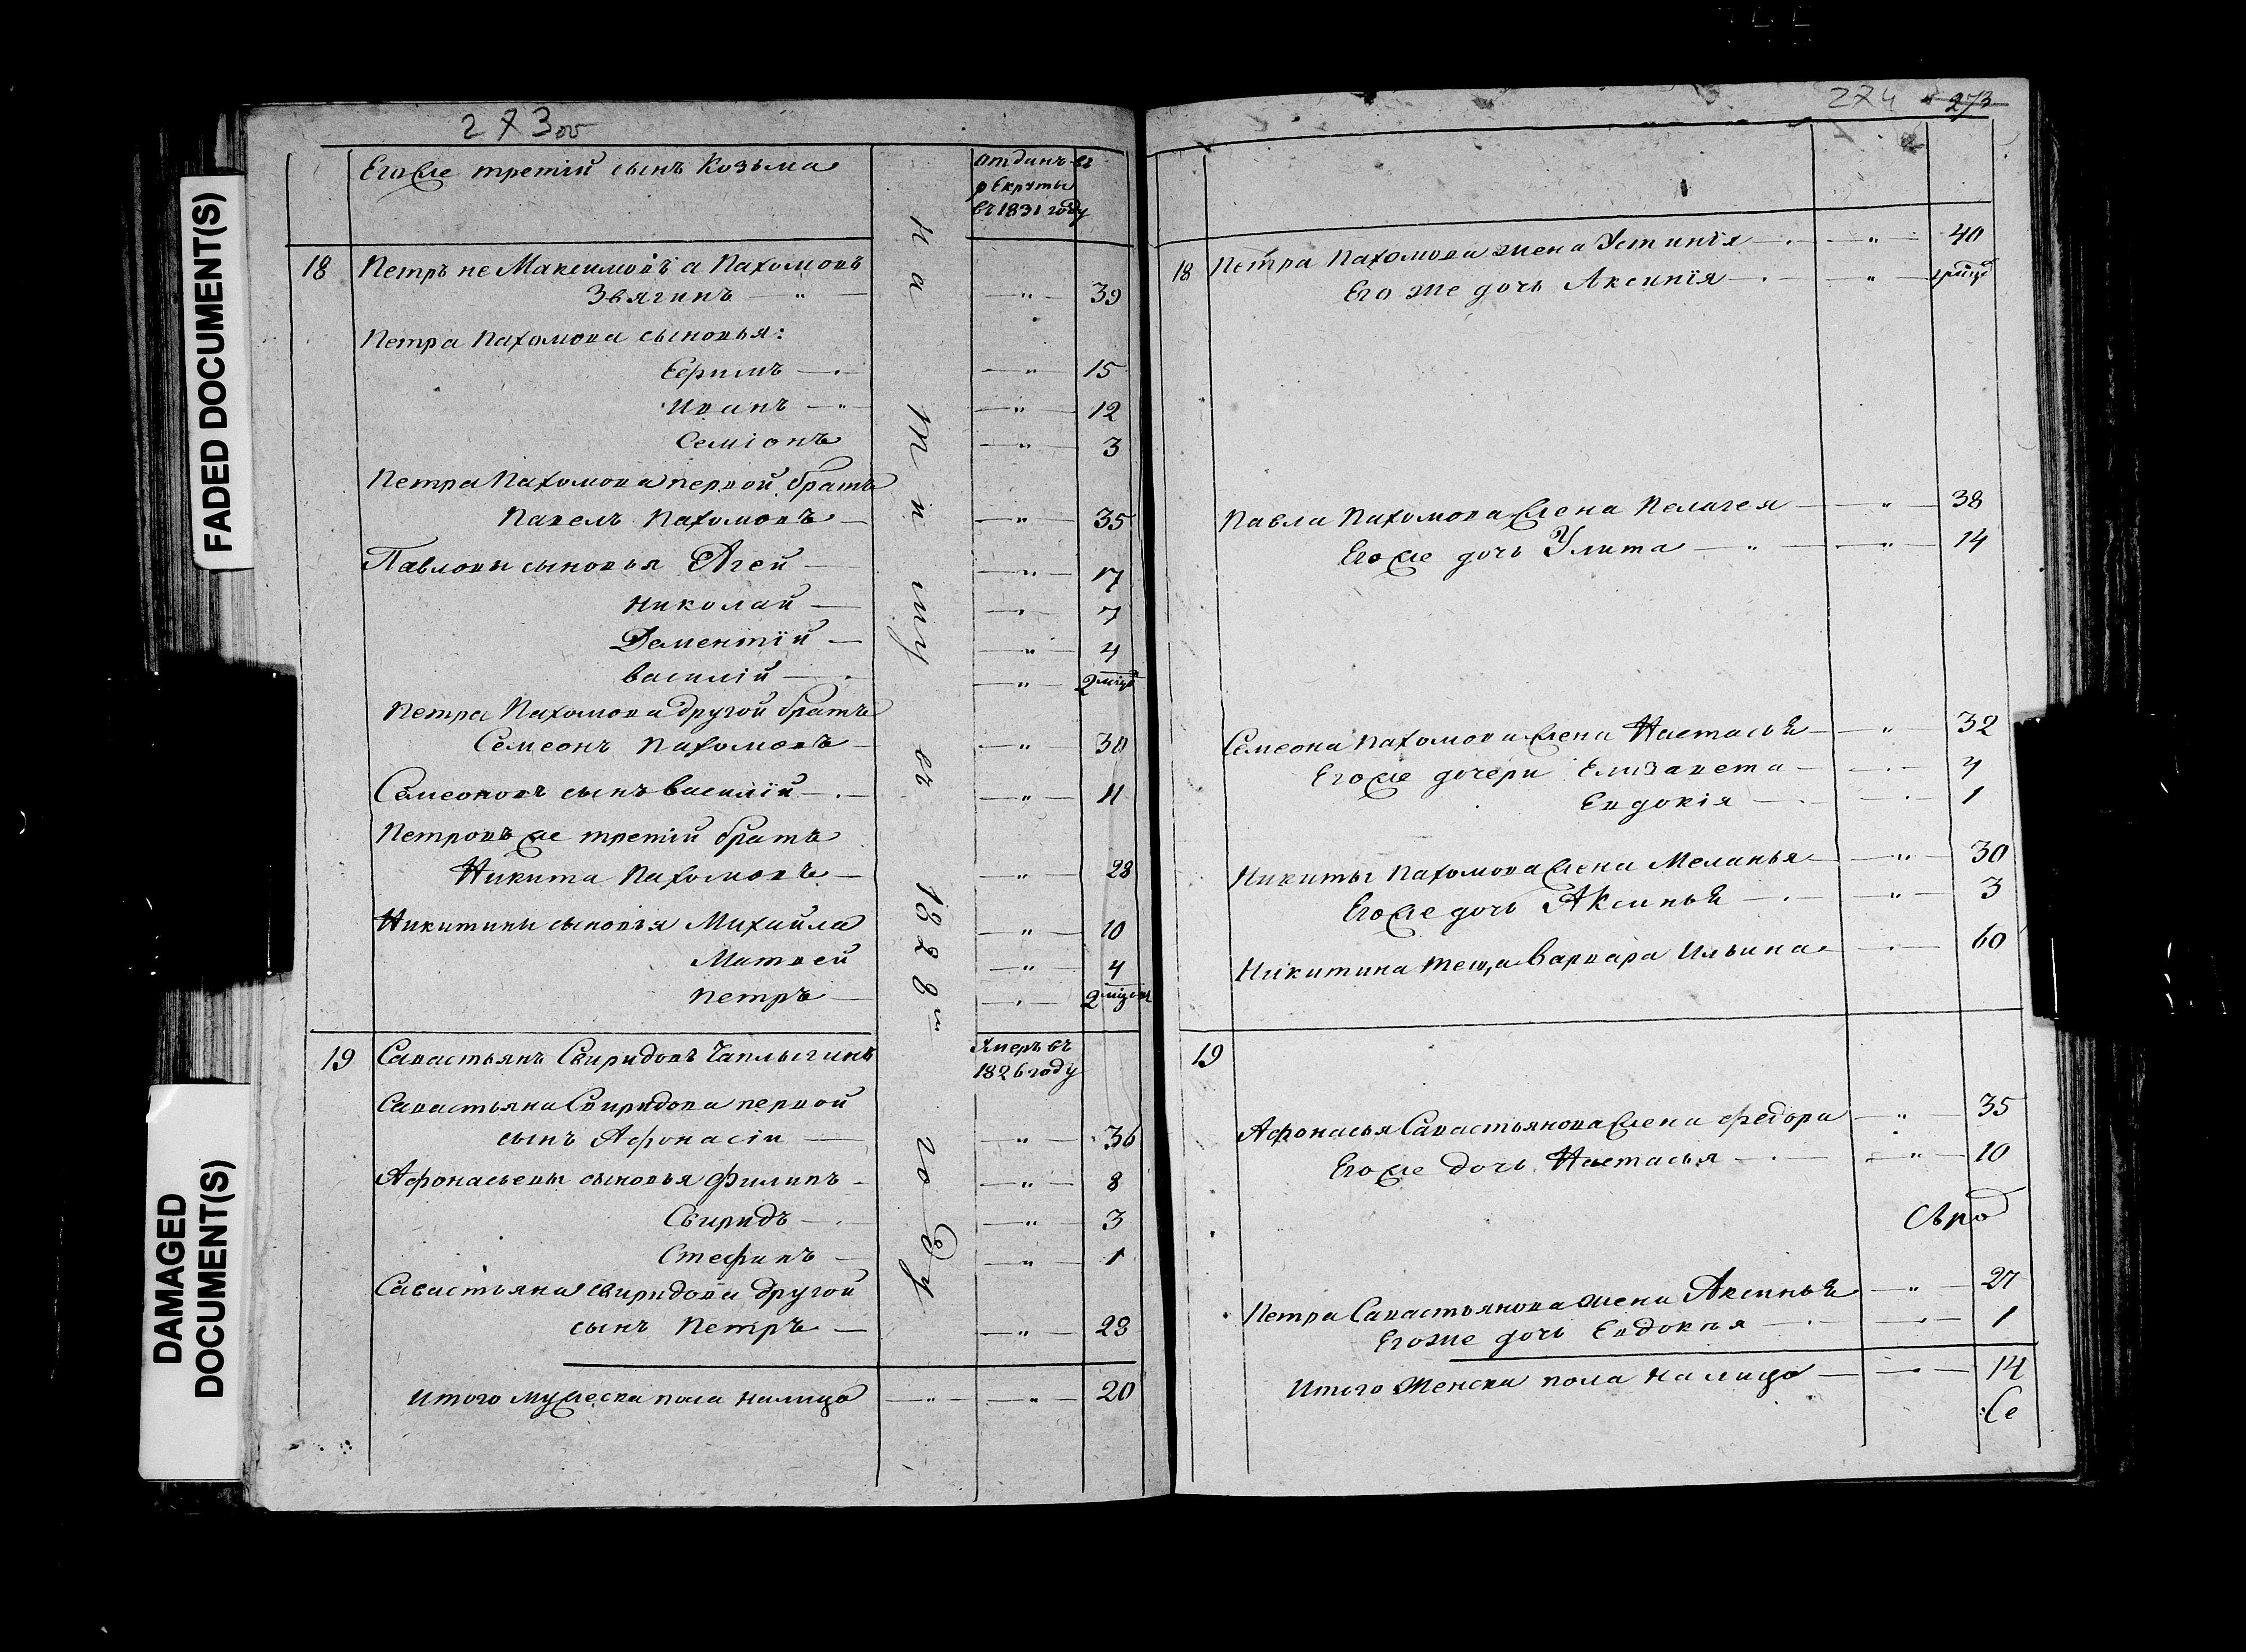 FADED DOCUMENT(S)
DAMAGED
DOCUMENT(S)
273 об
Егоже третiй сынъ Козьма
отданъ въ
рекруты
въ 1831 году
на пишу въ 1828м году
18 Петръ не Максимовъ а Пахомовъ
Звягинъ — " — — " — 39
Петра Пахомова сыновья:
Ефимъ — — " — 15
Иванъ — " — " — 12
Семiонъ — " — 3
Петра Пахомова первой братъ
Павелъ Пахомовъ — — " — 35
Павловы сыновья Агей — — " — 17
Николай — — " — 7
Дементiй — — " — 4
Василiй — — " — 2 мѣця
Петра Пахомова другой братъ
Семеонъ Пахомовъ — — " — 30
Семеоновъ сынъ Василiй — — " — 11
Петровъ же третiй братъ
Никита Пахомовъ — — " — 28
Никитины сыновья Михайла — " — 10
Матвей — " — 4
Петръ — — " — 2 мѣся
19 Савастьянъ Свиридовъ Чаплыгинъ
Умеръ въ
1826 году
Савастьяна Свиридова первой
сынъ Афонасiй — — " — 36
Афонасьевы сыновья Филипъ — — " — 8
Свиридъ — — " — 3
Стефанъ — — " — 1
Савастьяна Свиридова другой
сынъ Петръ — — " — 23
Итого мужеска пола налицо — " — — " — 20
274 273
18 Петра Пахомова жена Устинiя — " — 40
Его же дочь Аксинiя — "
Павла Пахомова жена Пелагея — " — 38
Егоже дочь Улита — " — " — 14
Семеона Пахомова жена Настасья — " — 32
Егоже дочери Елизавета — 4
Евдокiя — 1
Никиты Пахомова жена Меланья — " — 30
Егоже дочь Аксинья — " — 3
Никитина теща Варвара Ильина — 60
19
Афонасья Савастьянова жена Федора — " — 35
Егоже дочь Настасья — " — 10
Петра Савастьянова жена Аксинья — " — 27
Егоже дочь Евдокия — 1
Итого женска пола налицо — 14
Се